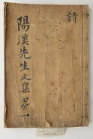 詩
陽溪先生文集卷一